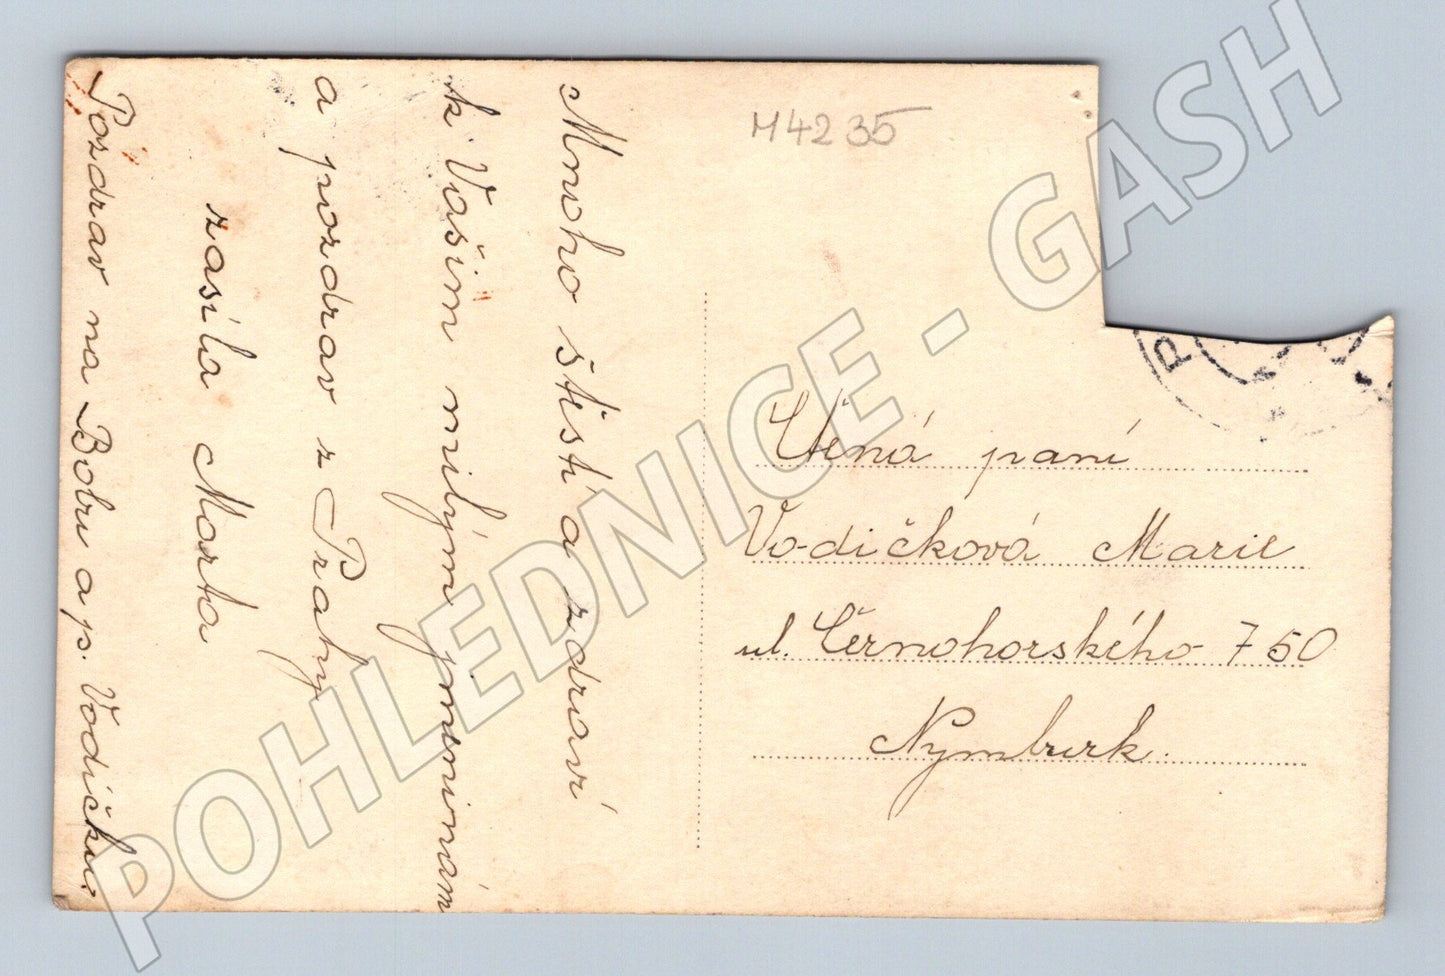 Mnoho štěstí a zdraví
k Vašim milým jmeninám
a pozdrav z Prahy
zasílá Marta
Pozdrav na Bobu a p. Vodičku.
M4235
P
Ctěná paní
Vodičková Marie
ul. Černohorského 750
Nymburk.
POHLEDNICE - GASH